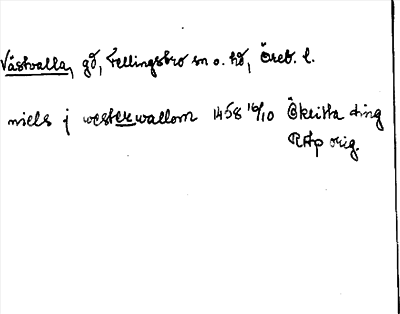 Västvalla, gd, Fellingsbro sn o. hd, Öreb. l.
niels j westerwallom 1458 16/10 Ökeitta ting
RAp orig.